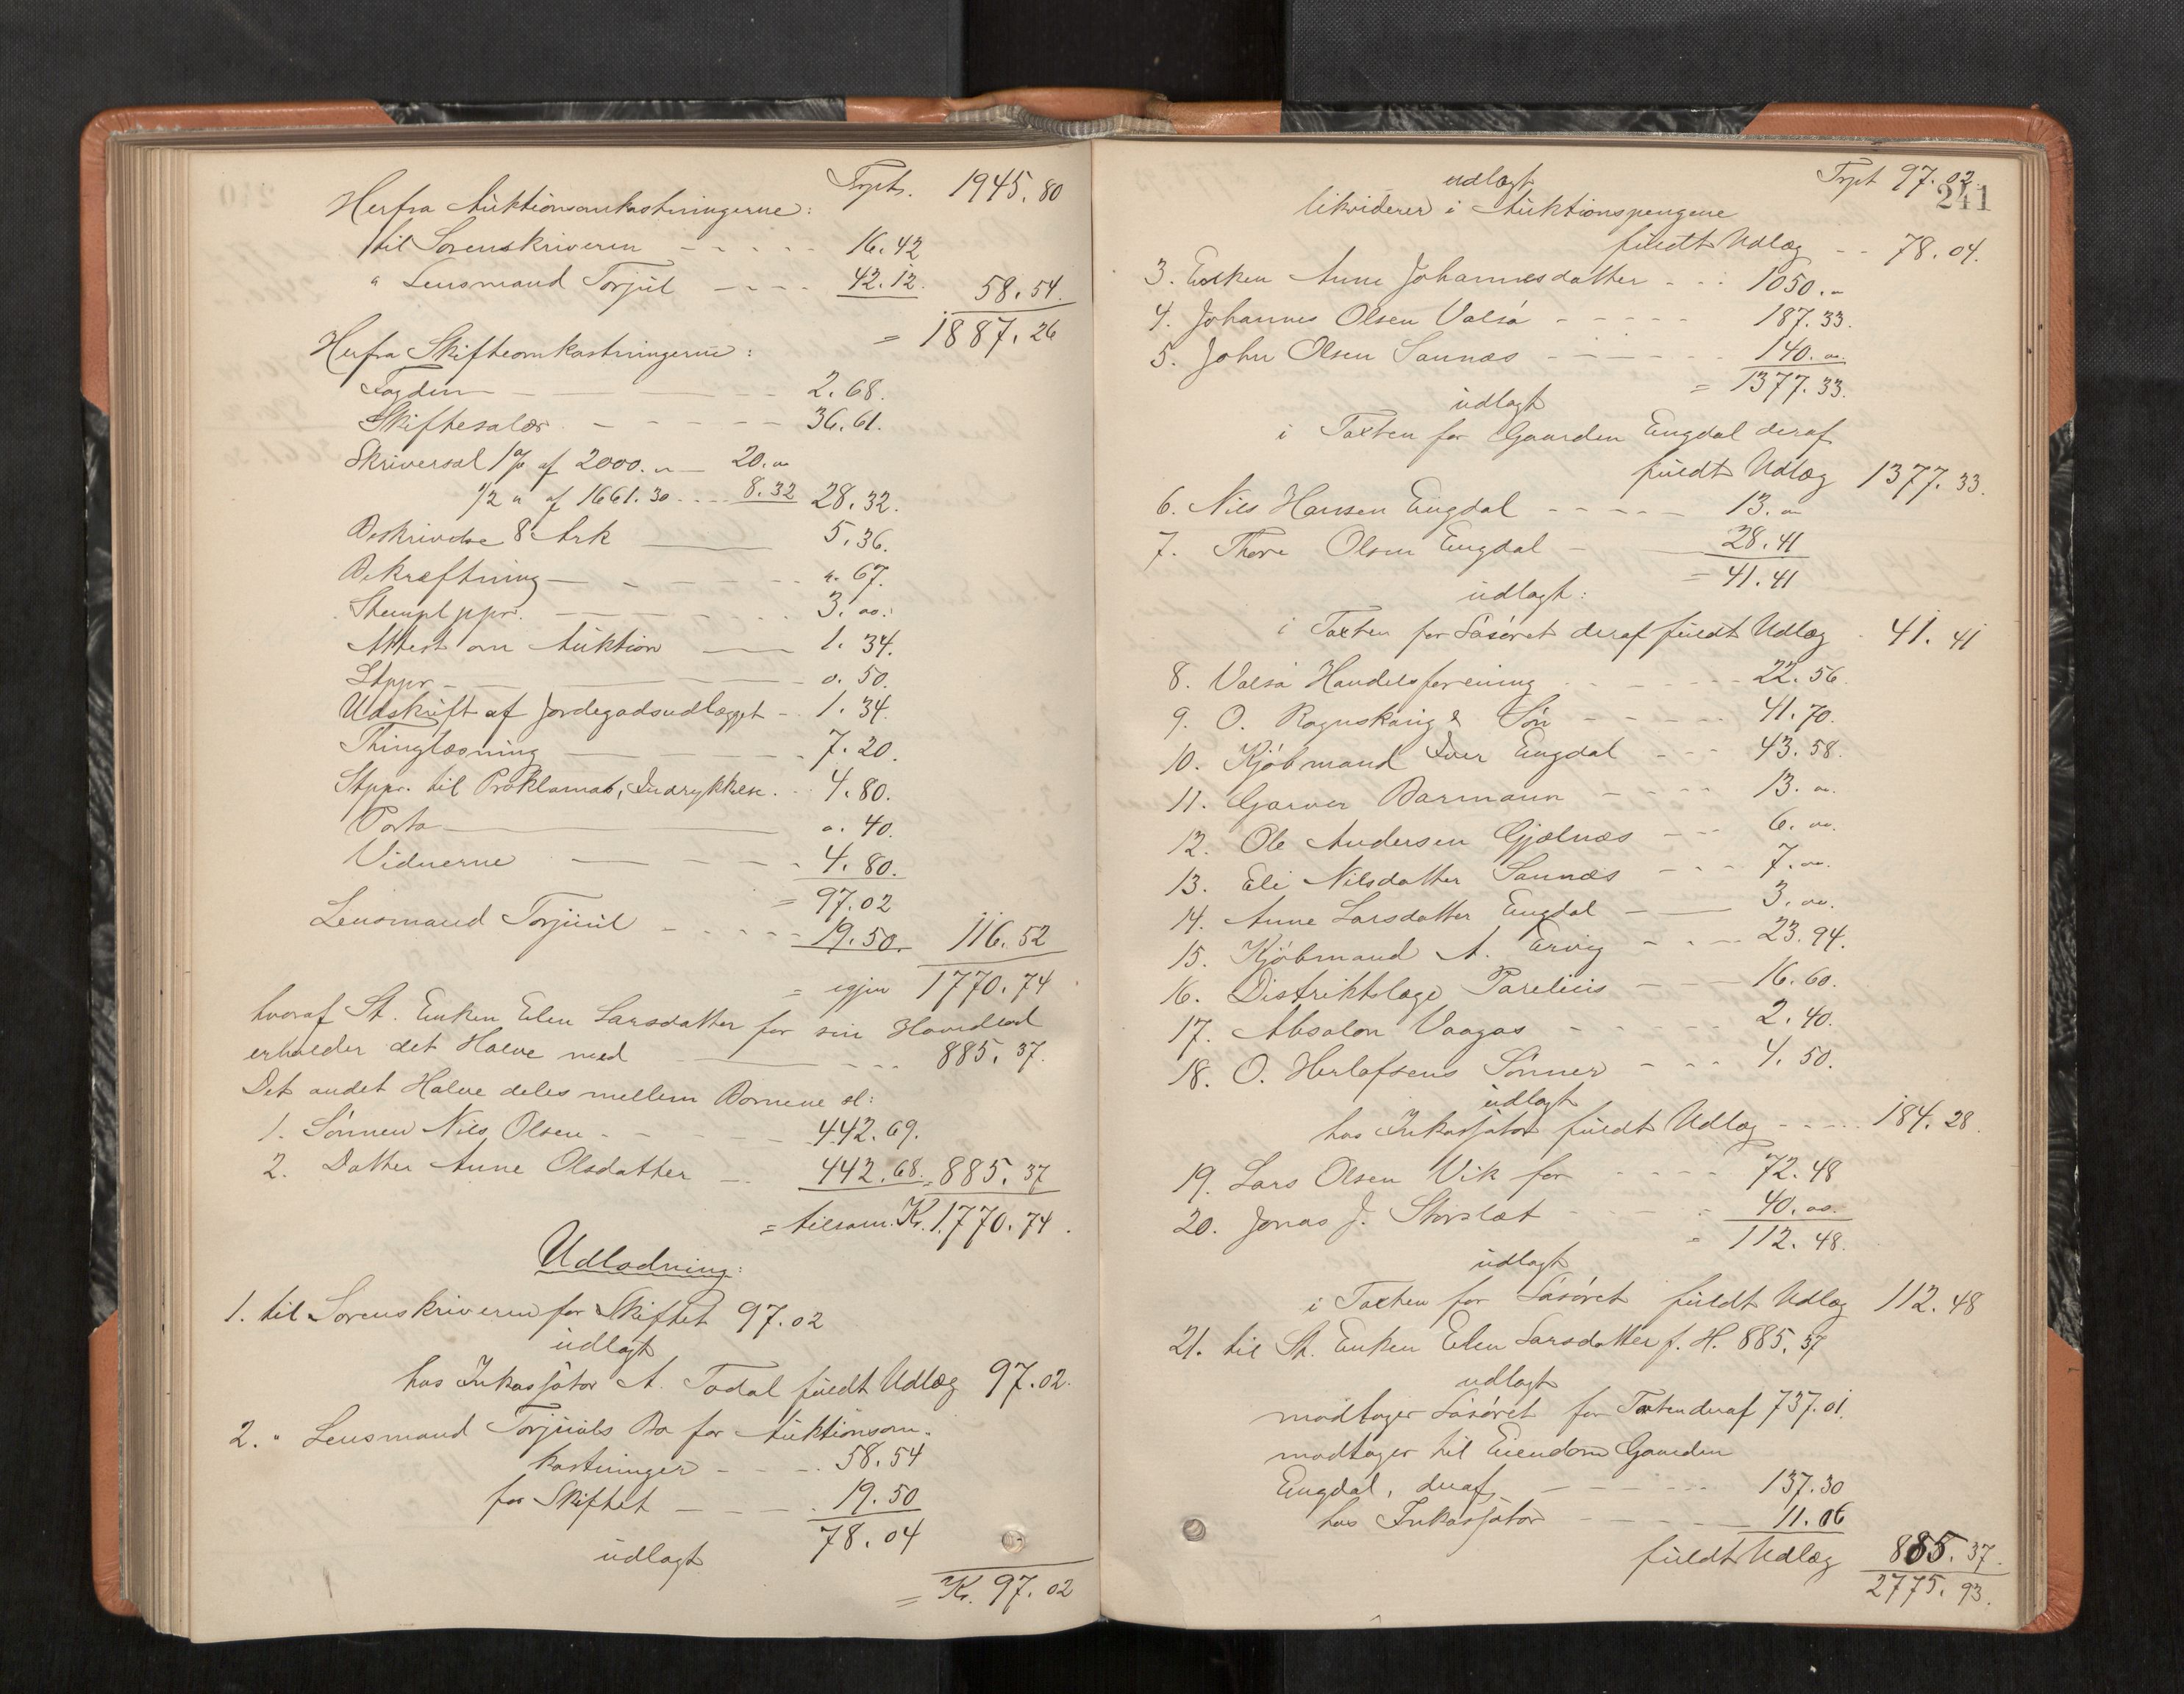 Trpt. 1945.80
Herfra Auktionsomkostningerne:
til Sorenskriveren 16.42
" Lensmand Torjul 42.12. 58.54.
= 1887.26
Herfra Skifteomkostningerne:
Fogden 2.68.
Skiftesalær 36.61.
Skriversal 1% af 2000. " 20. "
1/2 " af 1661.30 8.32 28.32.
Beskrivelse 8 Ark 5.36.
Bekræftning ". 67.
Stempl ppr. 3. oo.
Attest om Auktion 1. 34.
Stppr. o. 50.
Udskrift af Jordegodsudlægget 1. 34.
Thinglæsning 7. 20.
Stppr. til Proklamat, Indrykkelse 4. 80.
Porto o. 40.
Vidnerne 4. 80.
= 97.02
Lensmand Torjuul 19.50. 116.52
= igjen 1770.74
hvoraf St. Enken Elen Larsdatter for sin Hovedlod
erholder det Halve med 885.37.
Det andet Halve deles mellem Børnene sl:
1. Sønnen Nils Olsen 442.69.
2. Datter Anne Olsdatter 442.68. = 885.37
= tilsam. Kr. 1770.74.
Udlodning:
1. til Sorenskriveren for Skiftet 97.02
udlagt
hos Inkassator A. Todal fuldt Udlæg 97.02.
2. " Lensmand Torjuuls Bo for Auktionsom-
kostninger 58.54
for Skiftet 19.50
78.04
udlagt
= Kr. 97.02
Trpt 97.02.
241
udlagt
likviderer i Auktionspengene
fuldt Udlæg 78.04.
3. Enken Anne Johannesdatter 1050. "
4. Johannes Olsen Valsø 187.33.
5. John Olsen Sannæs 140. oo.
= 1377.33.
udlagt
i Taxten for Gaarden Engdal deraf
fuldt Udlæg 1377.33.
6. Nils Hansen Engdal 13. oo
7. Thore Olsen Engdal 28.41
= 41.41
udlagt:
i Taxten for Løsøret deraf fuldt Udlæg 41.41
8. Valsø Handelsforening 22.56.
9. O. Rognskaug & Søn 41.70.
10. Kjøbmand Iver Engdal 43.58.
11. Garver Barmann 13. oo.
12. Ole Andersen Gjølnæs 6. oo.
13. Eli Nilsdatter Sannæs 7. oo.
14. Anne Larsdatter Engdal 3. oo.
15. Kjøbmand A. Ervig 23.94.
16. Distriktslæge Parelius 16.60.
17. Absalon Vaagos 2.40.
18. O. Herlofsens Sønner 4.50.
udlagt
hos Inkassator fuldt Udlæg 184.28.
19. Lars Olsen Vik for 72.48
20. Jonas J. Storslæt 40. oo.
= 112.48.
udlagt
i Taxten for Løsøret fuldt Udlæg 112.48
21. til St. Enken Elen Larsdatter f. H. 885.37
udlagt
modtager Løsøret for Taxten deraf 737.01.
modtager til Eiendom Gaarden
Engdal, deraf 137.30
hos Inkassator 11.06
fuldt Udlæg 885.37.
2775.93.